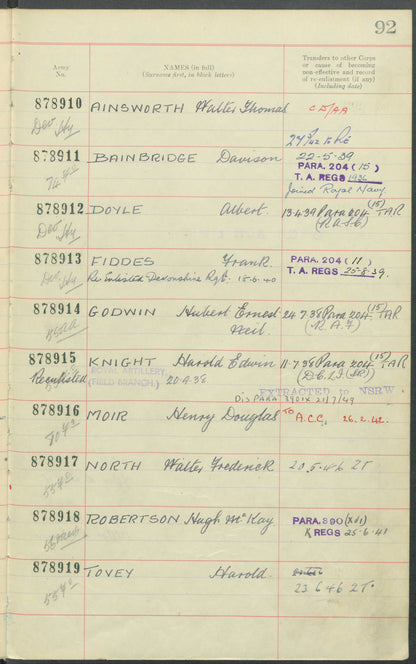 92
Army
No.
NAMES (in full)
(Surname first, in block letters)
Transfers to other Corps
or cause of becoming
non-effective and record
of re-enlistment (if any)
(Including date)
878910 AINSWORTH Walter Thomas
Dev Hy
878911 BAINBRIDGE Davison 22-5-39
PARA. 204 (15)
T. A. REGS 1936
Joined Royal Navy
878912 DOYLE Albert. 13.4.39 Para 204 (15) TAR
Dev Hy (R.A.S.C)
878913 FIDDES Frank. PARA. 204 (11)
T. A. REGS 25-8-39.
Dev Hy Re Enlisted Devonshire Rgt. 18-6-40
878914 GODWIN Hubert Ernest 24.7.38 Para 204 (15) TAR
Neil. (R.A.F)
878915 KNIGHT Harold Edwin 11.7.38 Para 204 (15) TAR
Reenlisted ROYAL ARTILLERY,
(FIELD BRANCH.) 20.9.38 (D.C.L.I.)
EXTRACTED to NSRW
Dis PARA 390 21/7/49
878916 MOIR Henry Douglas TO A.C.C. 26.2.42.
878917 NORTH Walter Frederick 20.5.46 2T
878918 ROBERTSON Hugh McKay PARA. 390 (XVI)
K REGS 25-6-41
878919 TOVEY Harold.
23.6.46 2T.